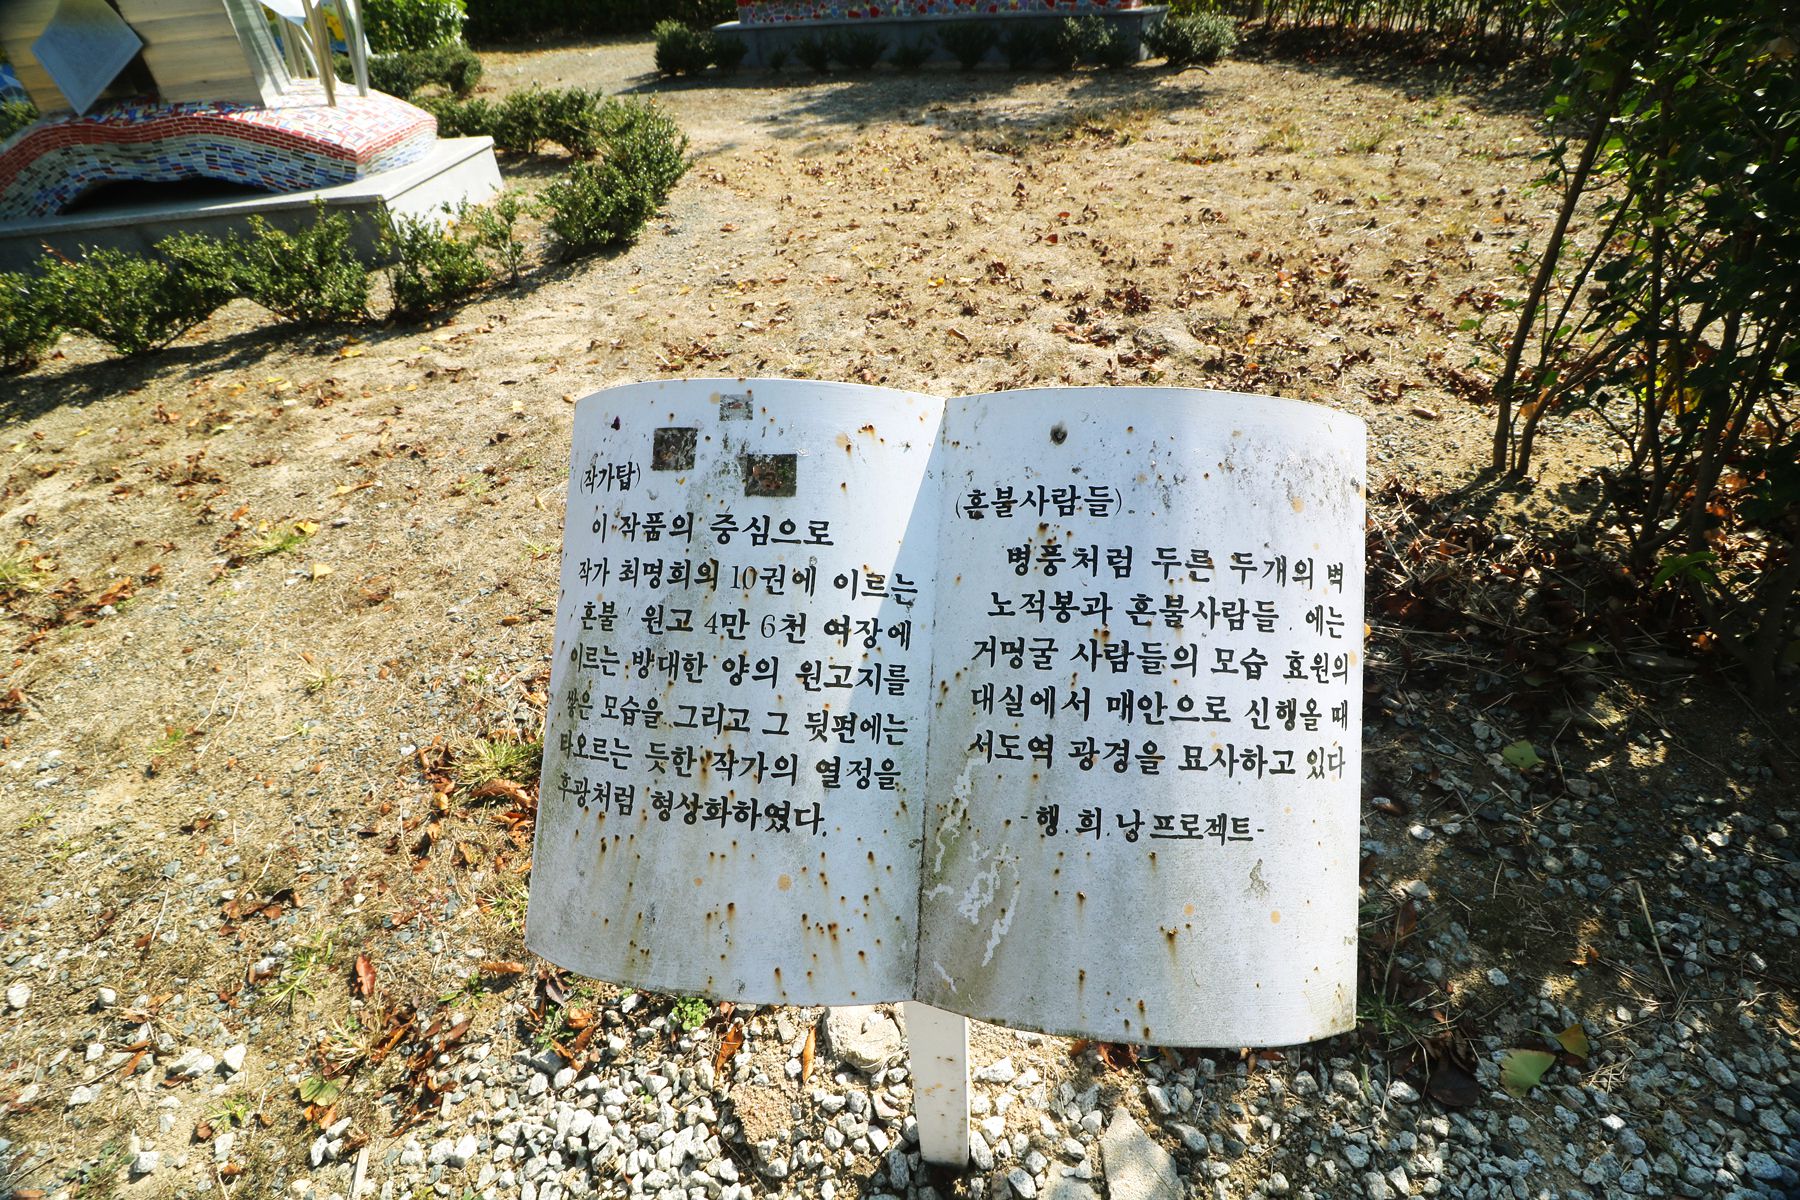 (작가탑)
이 작품의 중심으로
작가 최명희의 10권에 이르는
혼불' 원고 4만 6천 여장에
이르는 방대한 양의 원고지를
쌓은 모습을 그리고 그 뒷편에는
타오르는 듯한 작가의 열정을
후광처럼 형상화하였다.
(혼불사람들)
병풍처럼 두른 두개의 벽
노적봉과 혼불사람들 에는
거멍굴 사람들의 모습 효원의
대실에서 매안으로 신행올 때
서도역 광경을 묘사하고 있다
-행.희.낭프로젝트-